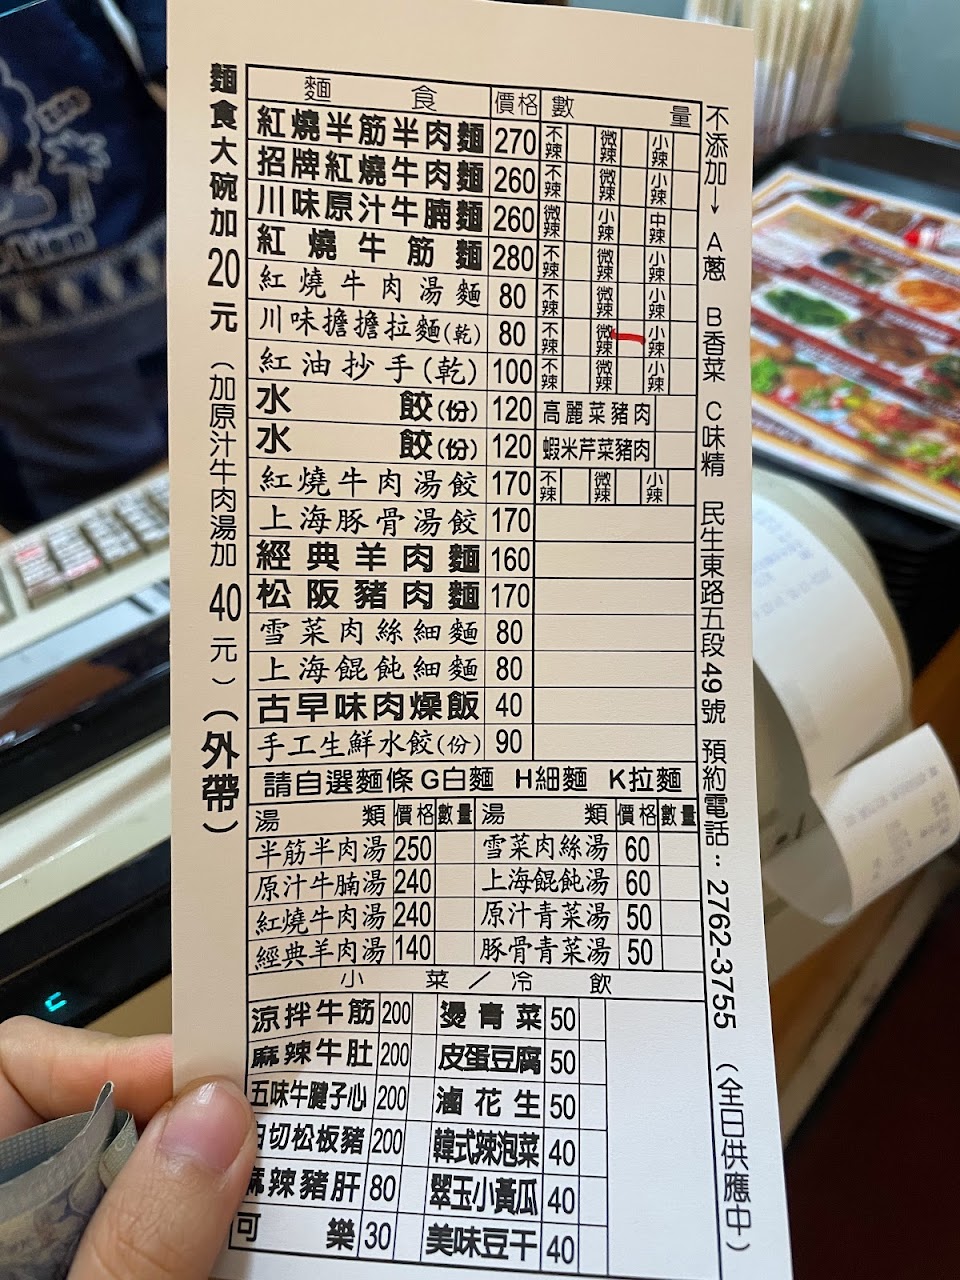 麵食大碗加20元（加原汁牛肉湯加40元）（外帶）
麵食 價格 數量
紅燒半筋半肉麵 270 不辣 微辣 小辣
招牌紅燒牛肉麵 260 不辣 微辣 小辣
川味原汁牛腩麵 260 微辣 小辣 中辣
紅燒牛筋麵 280 不辣 微辣 小辣
紅燒牛肉湯麵 80 不辣 微辣 小辣
川味擔擔拉麵(乾) 80 不辣 微辣 小辣
紅油抄手(乾) 100 不辣 微辣 小辣
水餃(份) 120 高麗菜豬肉
水餃(份) 120 蝦米芹菜豬肉
紅燒牛肉湯餃 170 不辣 微辣 小辣
上海豚骨湯餃 170
經典羊肉麵 160
松阪豬肉麵 170
雪菜肉絲細麵 80
上海餛飩細麵 80
古早味肉燥飯 40
手工生鮮水餃(份) 90
請自選麵條 G白麵 H細麵 K拉麵
湯類 價格 數量 湯類 價格 數量
半筋半肉湯 250 雪菜肉絲湯 60
原汁牛腩湯 240 上海餛飩湯 60
紅燒牛肉湯 240 原汁青菜湯 50
經典羊肉湯 140 豚骨青菜湯 50
小菜／冷飲
涼拌牛筋 200 燙青菜 50
麻辣牛肚 200 皮蛋豆腐 50
五味牛腱子心 200 滷花生 50
白切松板豬 200 韓式辣泡菜 40
麻辣豬肝 80 翠玉小黃瓜 40
可樂 30 美味豆干 40
不添加→ A蔥 B香菜 C味精 民生東路五段49號 預約電話：2762-3755 （全日供應中）